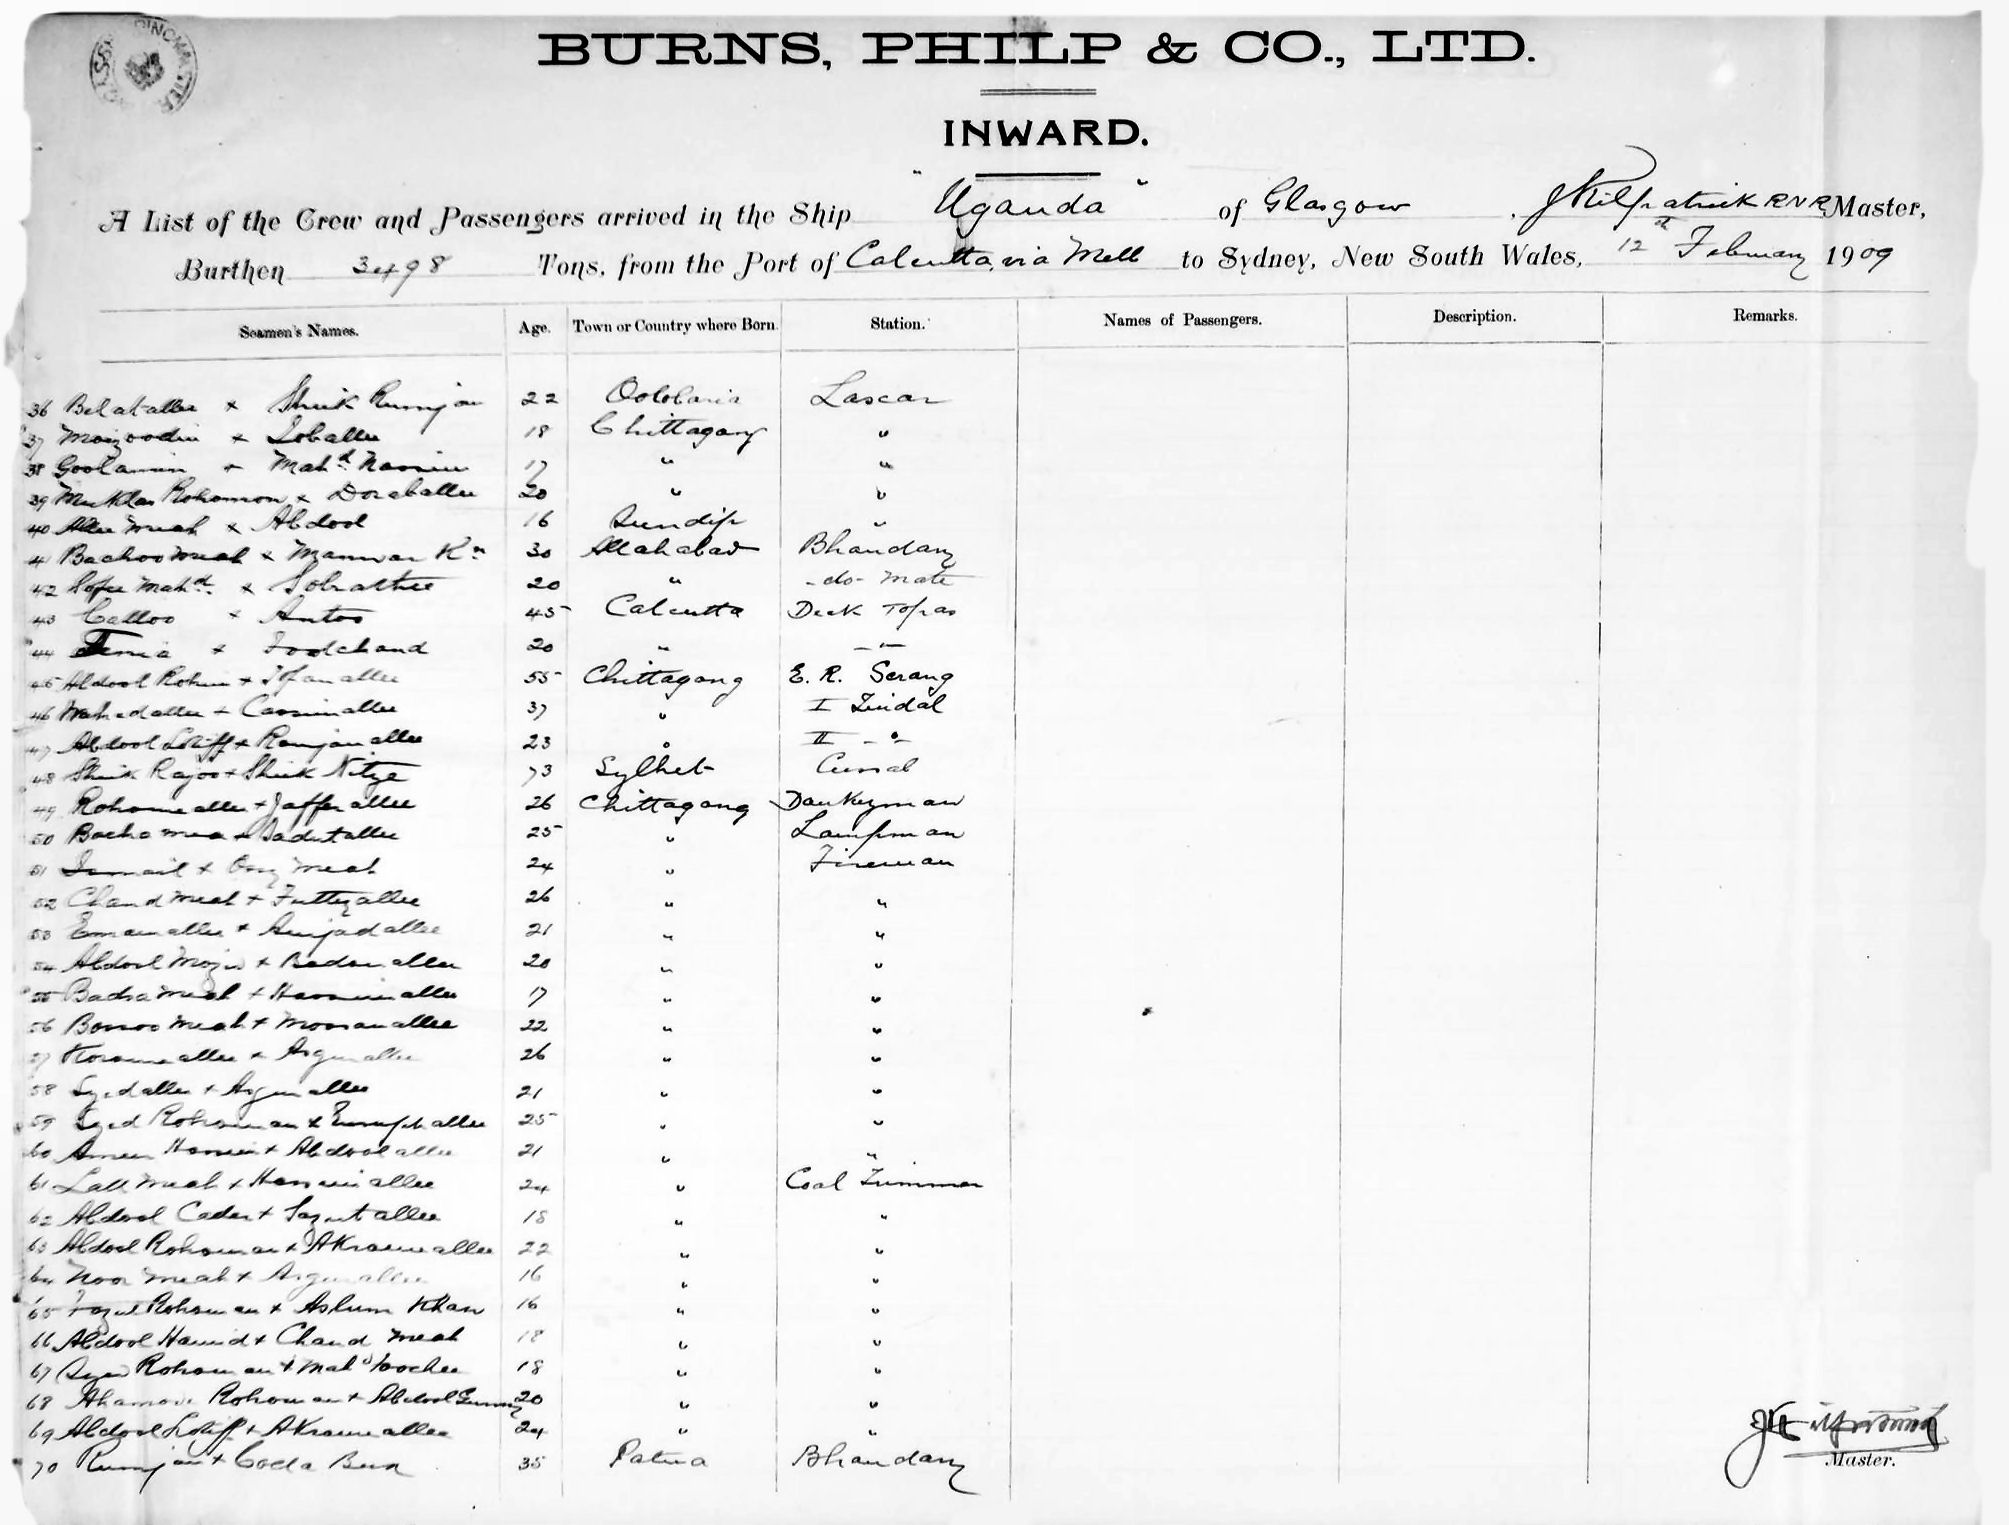 BURNS, PHILP & CO., LTD.
INWARD.
A List of the Crew and Passengers arrived in the Ship "Uganda" of Glasgow, J Kilpatrick RNR Master,
Burthen 3498 Tons, from the Port of Calcutta via Melb to Sydney, New South Wales, 12th February 1909
Seamen's Names. Age. Town or Country where Born. Station. Names of Passengers. Description. Remarks.
36 Belatallee x Sheik Rumjan 22 Oolobaria Lascar
37 Moizoodin x Soballee 18 Chittagong "
38 Goolamin x Mahd. Nassim 17 " "
39 Rohomon x Doraballee 20 " "
40 Allee Meah x Abdool 16 Sundip "
41 Bachoo Meah x Manwar Kn 30 Allahabad Bhandary
42 Sofee Mahd. x Sobrattee 20 " -do- Mate
43 Calloo x Antoo 45 Calcutta Deck Topas
44 x Foolchand 20 " - " -
45 Abdool Rohim x Tofanallee 55 Chittagong E. R. Serang
46 Wahedallee x Cassimallee 37 " I Tindal
47 Abdool Lotiff x Romjanallee 23 " II - " -
48 Sheik Rajoo x Sheik Nitye 73 Sylhet Cussab
49 Rohomeallee x Jafferallee 26 Chittagong Donkeyman
50 Bacha Mea x Sadutallee 25 " Lampman
51 Ismail x Meah 24 " Fireman
52 Chand Meah x Futteyallee 26 " "
53 Emamallee x Amjadallee 21 " "
54 Abdool Mojid x Badonallee 20 " "
55 Badsa Meah x Hassimallee 17 " "
56 Bossoo Meah x Moosanallee 22 " "
57 Koromeallee x Asgurallee 26 " "
58 Syedallee x Asgurallee 21 " "
59 Syed Rohoman x Eusuphallee 25 " "
60 Ameer Hossein x Abdoolallee 21 " "
61 Lall Meah x Hosseinallee 24 " Coal Trimmer
62 Abdool Cader x Sazutallee 18 " "
63 Abdool Rohoman x Akromeallee 22 " "
64 Noor Meah x Asgurallee 16 " "
65 Fozul Rohoman x Aslum Khan 16 " "
66 Abdool Hamid x Chand Meah 18 " "
67 Syed Rohoman x Mahd Koochee 18 " "
68 Ahamode Rohoman x Abdool Gunny 20 " "
69 Abdool Lotiff x Akromeallee 24 " "
70 Rumjan x Coda Bux 35 Patna Bhandary
J Kilpatrick
Master.